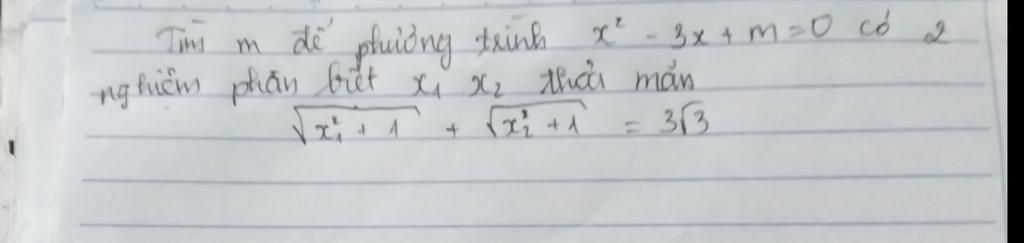 Tìm m để phương trình x² - 3x + m = 0 có 2
nghiệm phân biệt x₁ x₂ thỏa mãn
√(x₁² + 1) + √(x₂² + 1) = 3√3